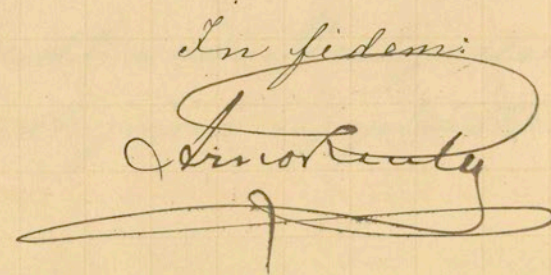 In fidem:
Arno Reuter